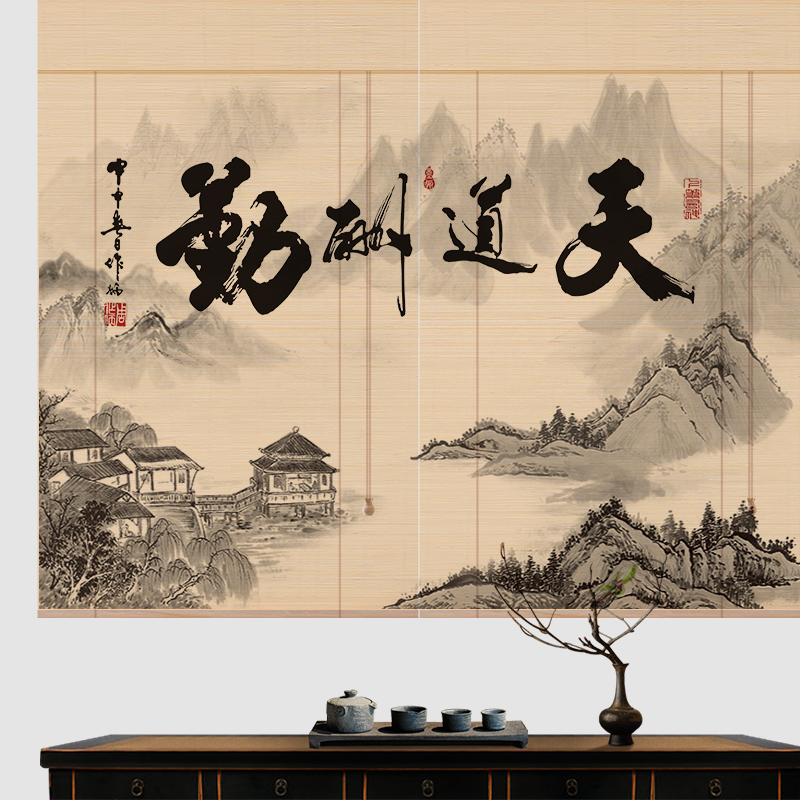 天道酬勤
甲申春日作炳